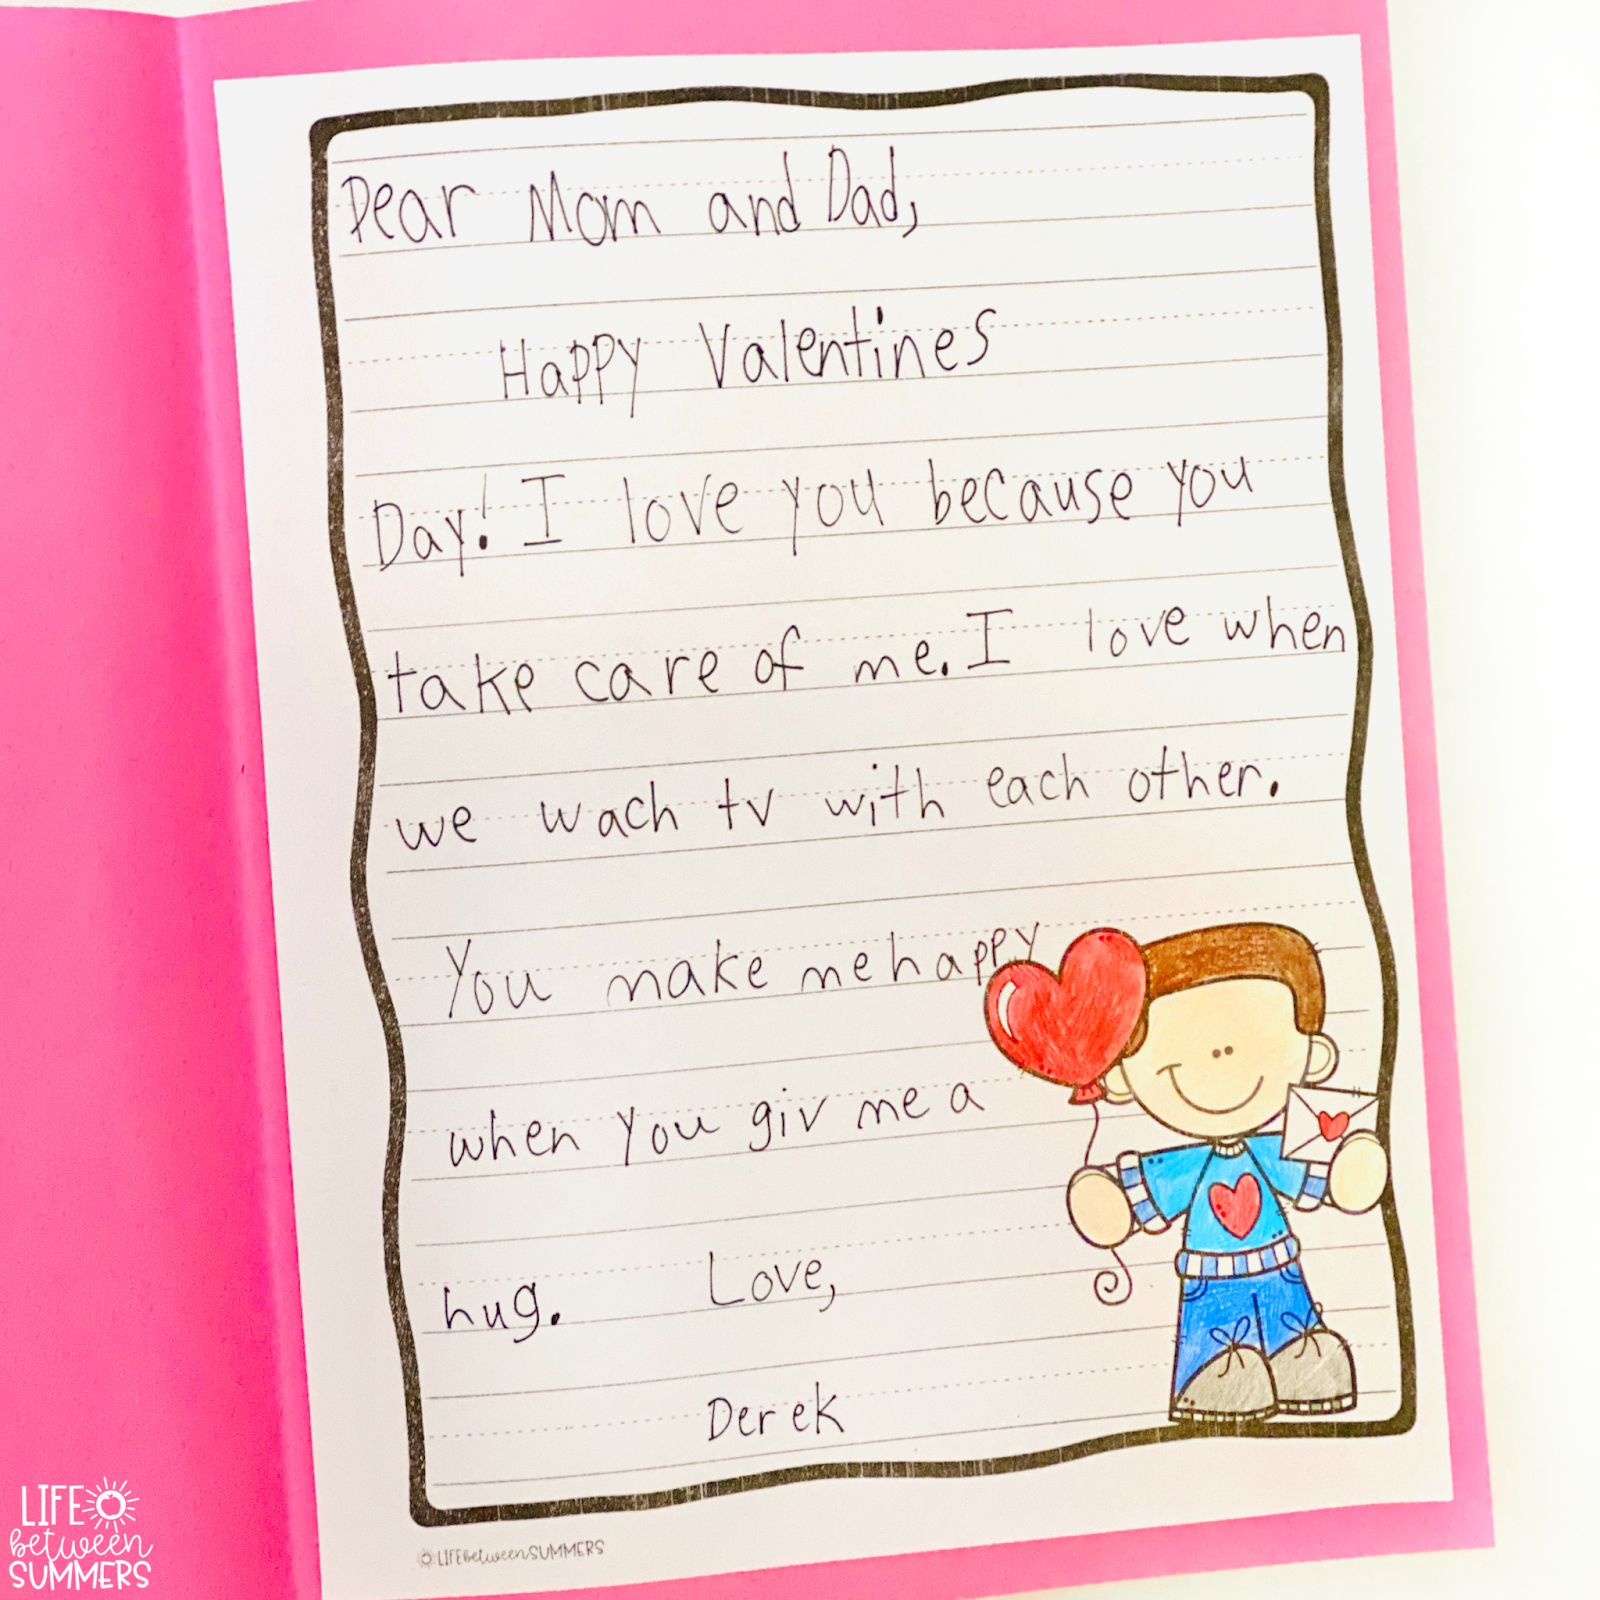 Dear Mom and Dad,
Happy Valentines
Day! I love you because you
take care of me. I love when
we wach tv with each other.
You make me happy
when you giv me a
hug. Love,
Derek
LIFE between SUMMERS
LIFE
between
SUMMERS